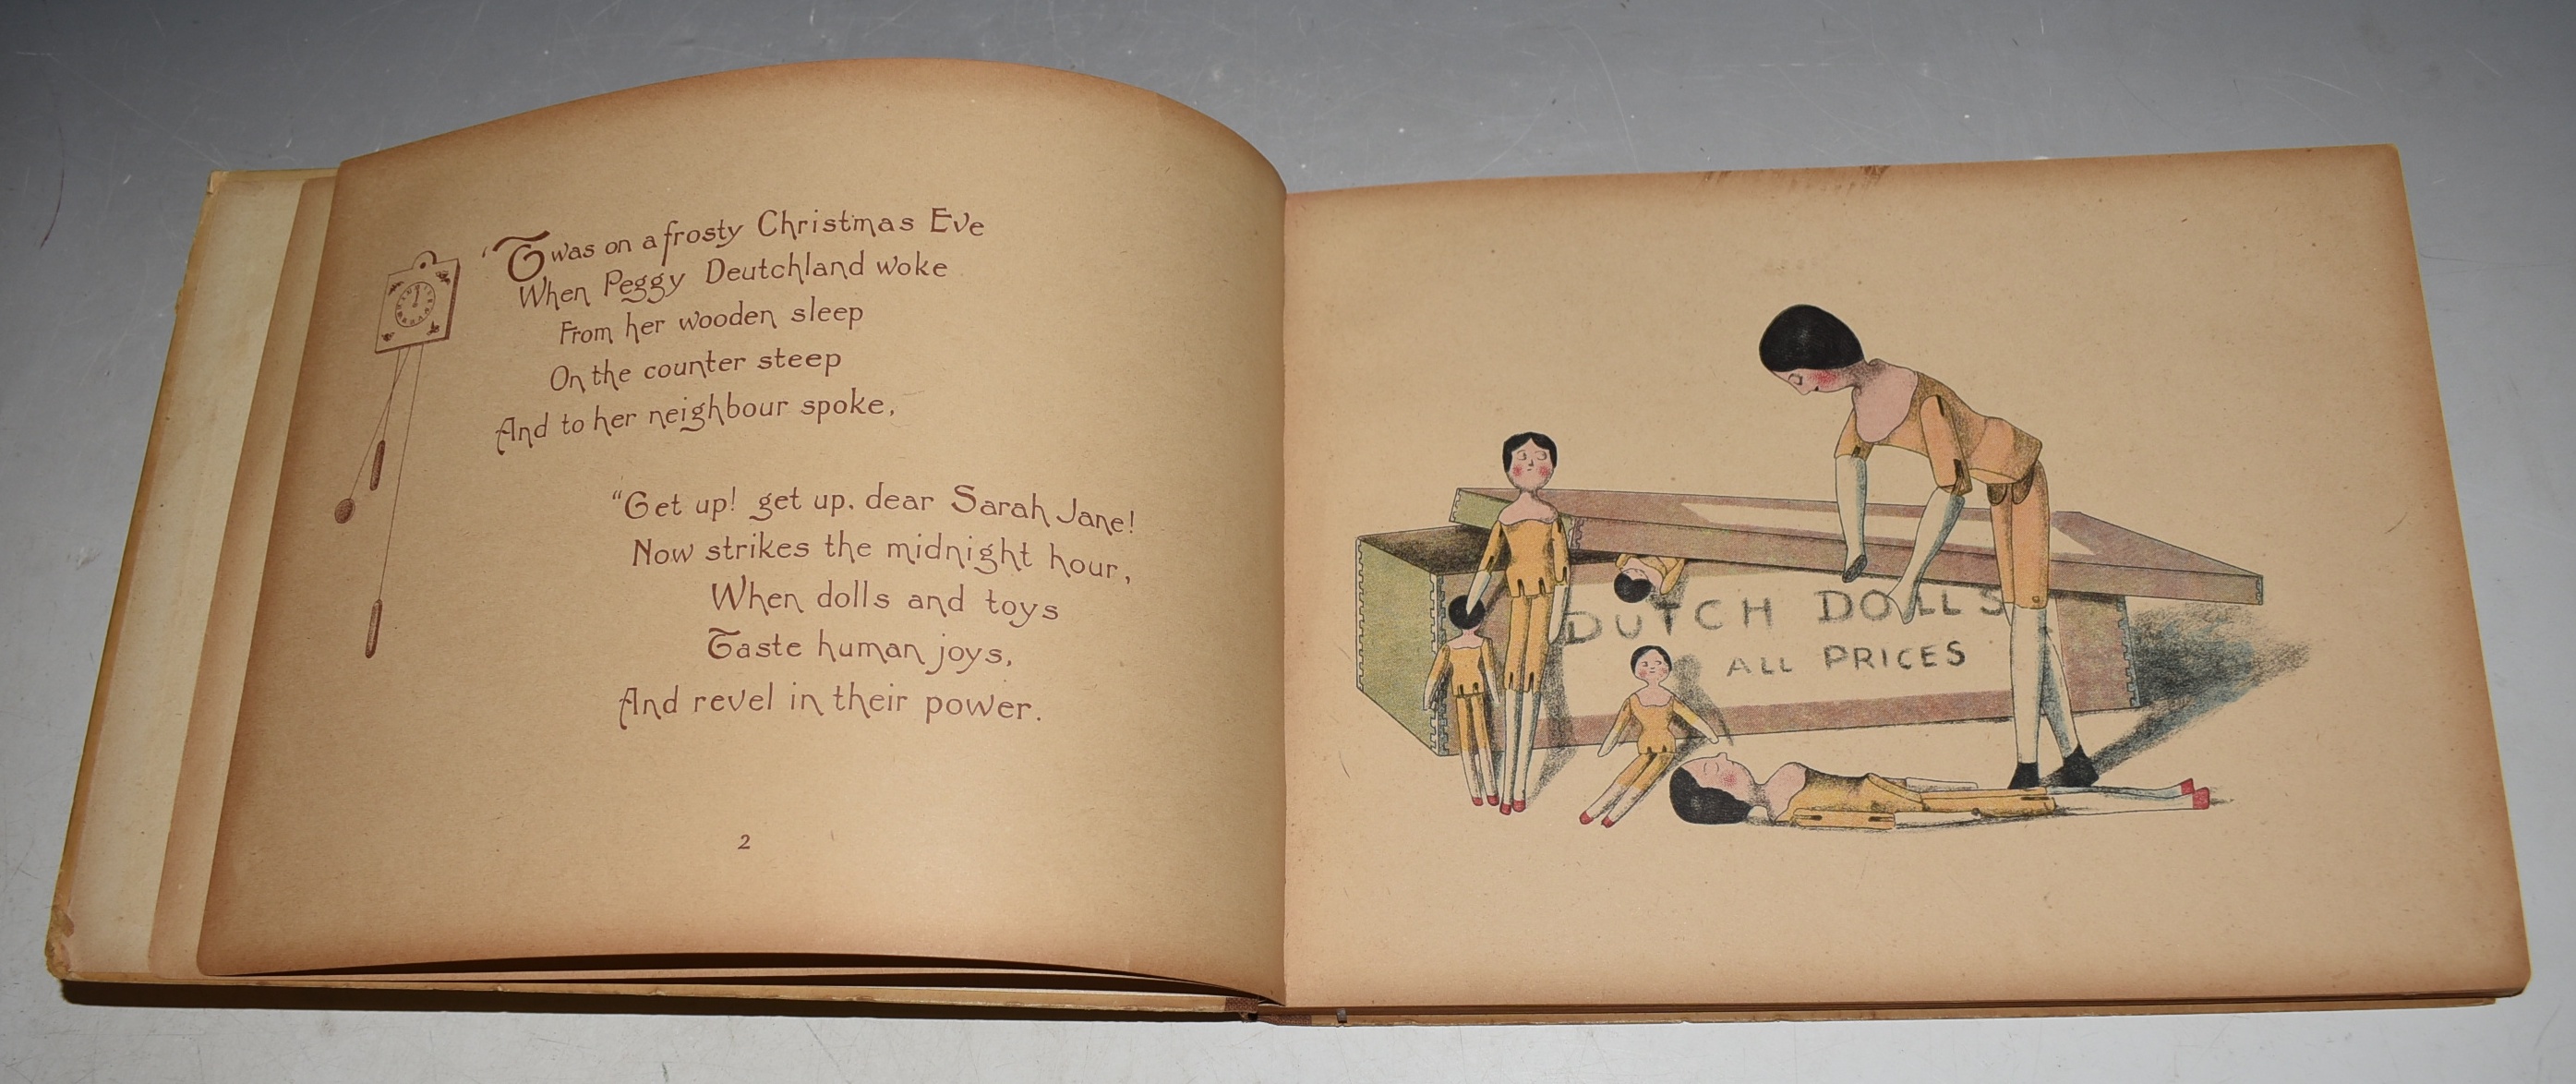 'Twas on a frosty Christmas Eve
When Peggy Deutchland woke
From her wooden sleep
On the counter steep
And to her neighbour spoke,
"Get up! get up, dear Sarah Jane!
Now strikes the midnight hour,
When dolls and toys
Taste human joys,
And revel in their power.
2
DUTCH DOLLS
ALL PRICES